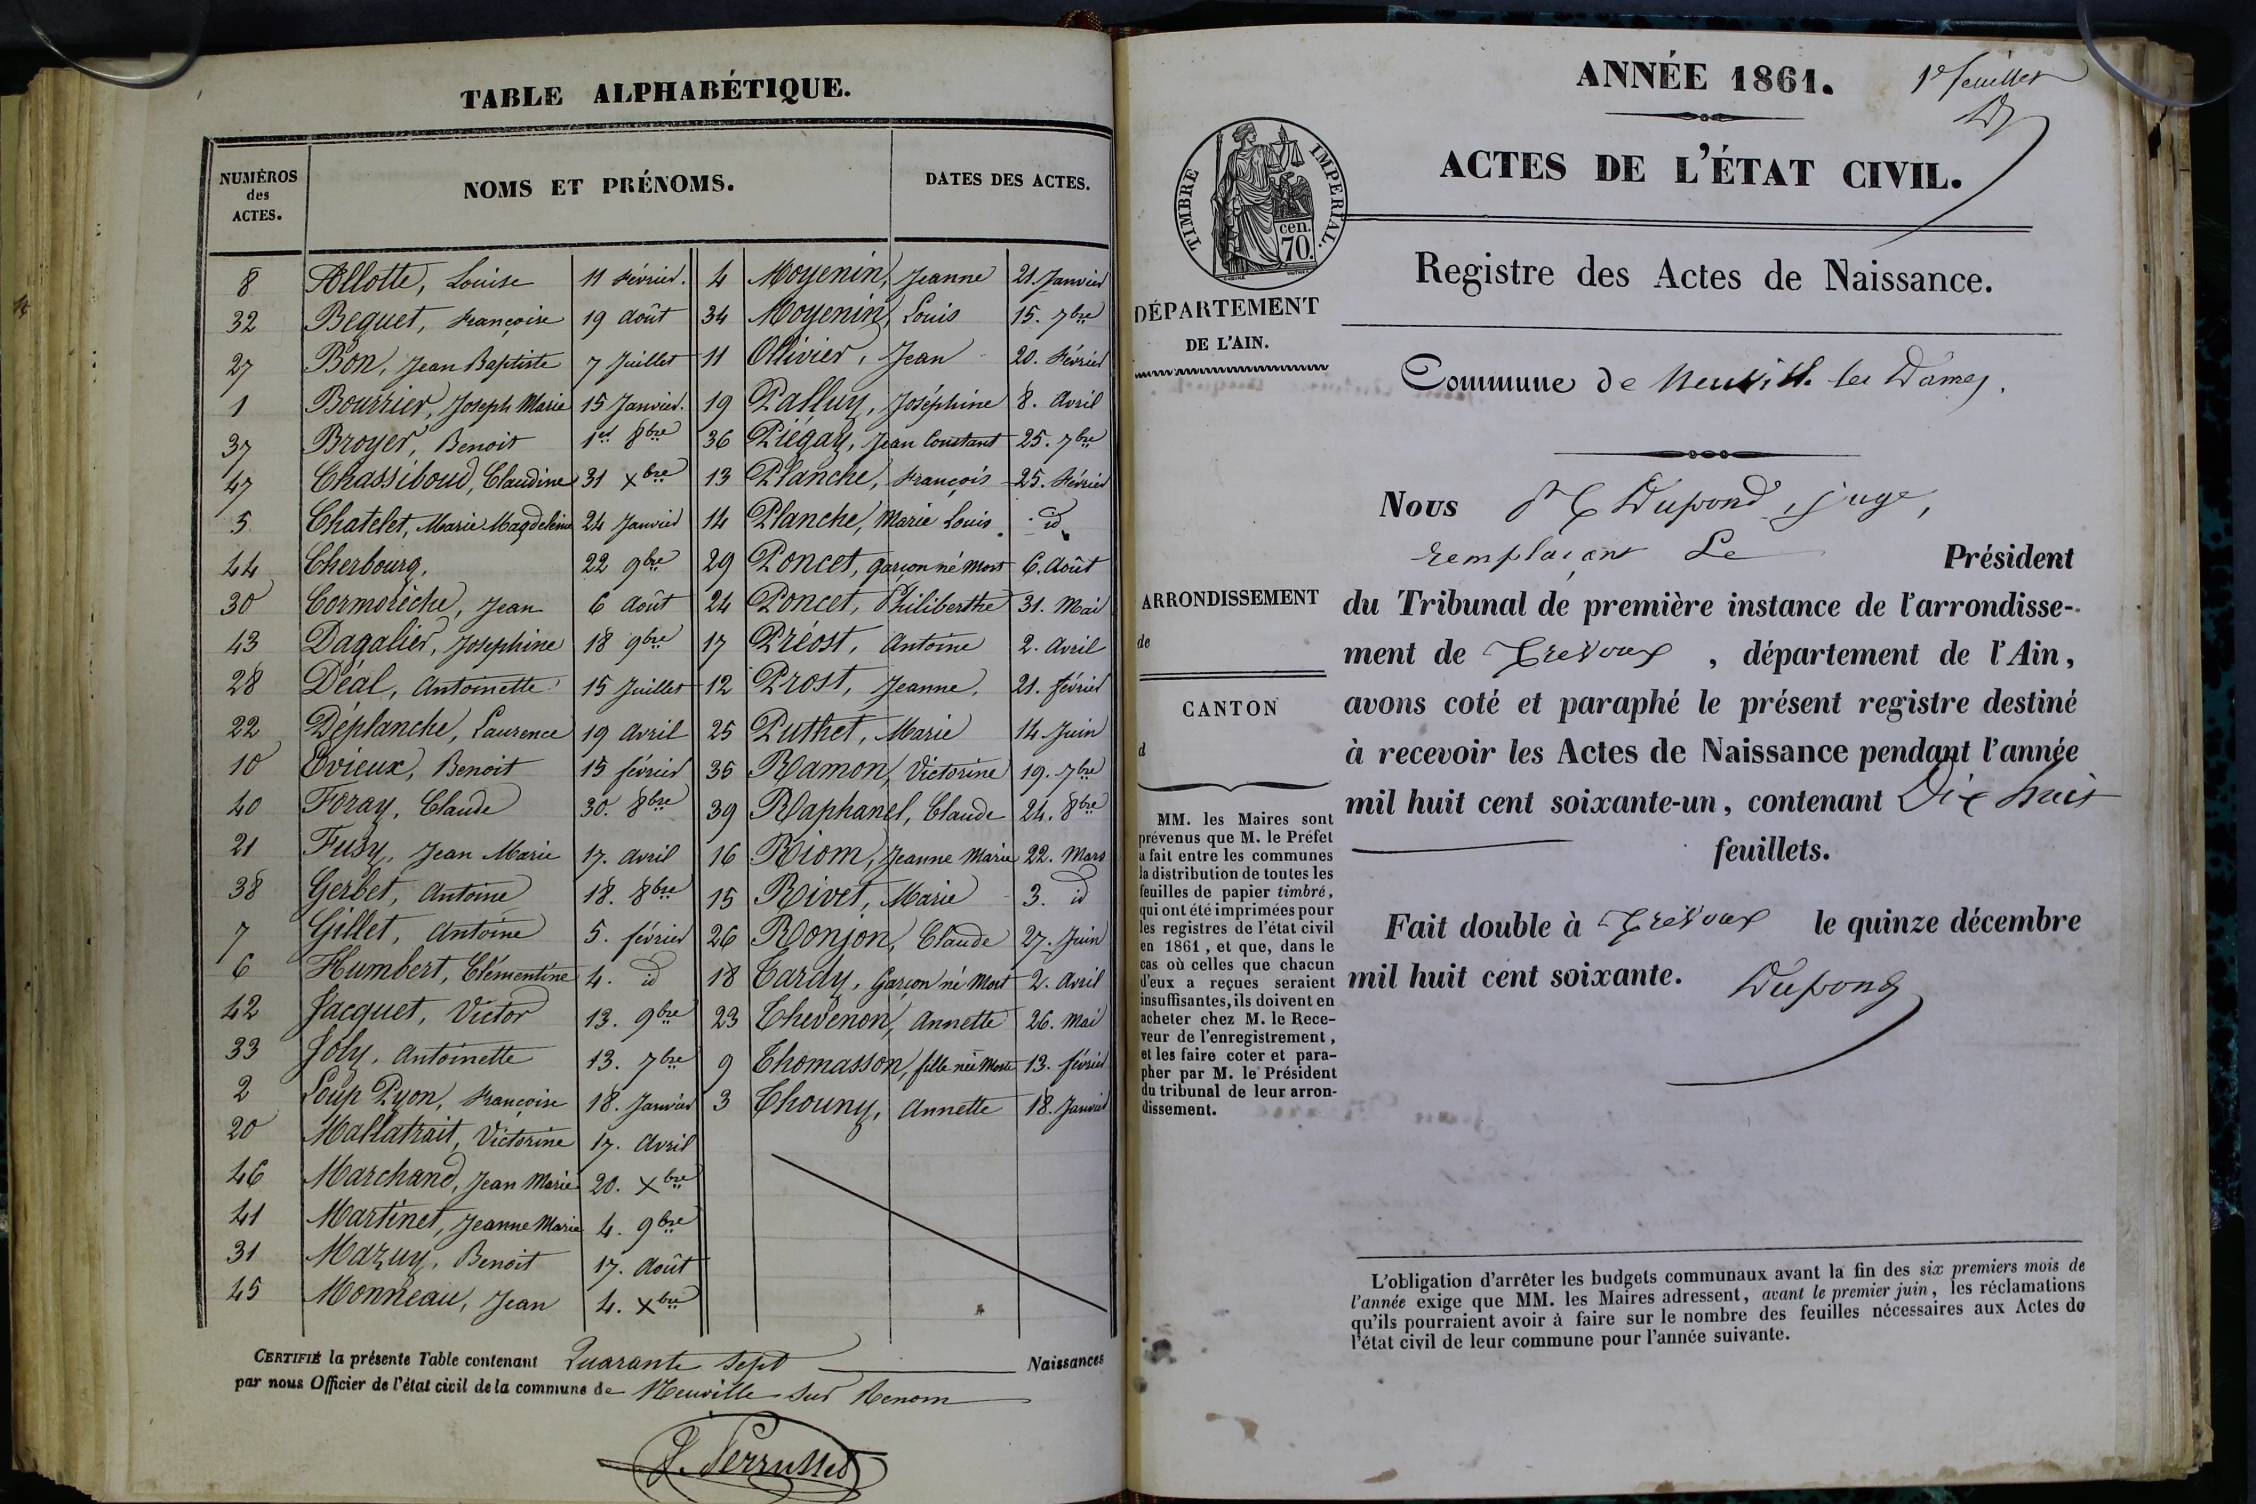 TABLE ALPHABÉTIQUE.
NUMÉROS des ACTES.
NOMS ET PRÉNOMS.
DATES DES ACTES.
8 Allotte, Louise 11 Février.
32 Beguet, Françoise 19 Août
27 Bon, Jean Baptiste 7 Juillet
1 Bourrier, Joseph Marie 15 Janvier.
37 Broyer, Benoit 1er 8bre
47 Chassiboud, Claudine 31 Xbre
5 Chatelet, Marie Magdeleine 24 Janvier
44 Cherbourg. 22 9bre
30 Cormorèche, Jean 6 Août
43 Dagalier, Josephine 18 9bre
28 Déal, Antoinette 15 Juillet
22 Déplanche, Laurence 19 Avril
10 Evieux, Benoit 15 février
40 Foray, Claude 30. 8bre
21 Fusy, Jean Marie 17. Avril
38 Gerbet, Antoine 18. 8bre
7 Gillet, Antoine 5. février
6 Humbert, Clémentine 4. id
42 Jacquet, Victor 13. 9bre
33 Joly, Antoinette 13. 7bre
2 Loup Pyon, Françoise 18. Janvier
20 Mallatrait, Victorine 17. Avril
46 Marchand, Jean Marie 20. Xbre
41 Martinet, Jeanne Marie 4. 9bre
31 Mazuy, Benoit 17. Août
45 Monneau, Jean 4. Xbre
4 Moyenin, Jeanne 21. Janvier
34 Moyenin, Louis 15. 7bre
11 Ollivier, Jean 20. Février
19 Palluy, Joséphine 8. Avril
36 Piégay, Jean Constant 25. 7bre
13 Planche, François 25. Février
14 Planche, Marie Louis. id
29 Poncet, garçon né Mort 6. Août
24 Poncet, Philiberthe 31. Mai
17 Préost, Antoine 2. Avril
12 Prost, Jeanne. 21. février
25 Puthet, Marie 14 Juin
35 Ramon, Victorine 19. 7bre
39 Raphanel, Claude 24. 8bre
16 Riom, Jeanne Marie 22. Mars
15 Rivet, Marie 3. id
26 Ronjon, Claude 27. Juin
18 Tardy, Garçon né Mort 2. Avril
23 Thevenon, Annette 26. Mai
9 Thomasson, fille née Morte 13. février
3 Thouny, Annette 18. Janvier
CERTIFIÉ la présente Table contenant Quarante sept Naissances
par nous Officier de l'état civil de la commune de Neuville sur Renom
J. Perrusset
ANNÉE 1861.
1er feuillet
ACTES DE L'ÉTAT CIVIL.
TIMBRE IMPERIAL.
cen. 70.
Registre des Actes de Naissance.
DÉPARTEMENT
DE L'AIN.
Commune de Neuville les Dames.
Nous Dupond, juge,
remplaçant Le Président
du Tribunal de première instance de l'arrondisse-
ment de Trévoux, département de l'Ain,
avons coté et paraphé le présent registre destiné
à recevoir les Actes de Naissance pendant l'année
mil huit cent soixante-un, contenant Dix huit
feuillets.
Fait double à Trévoux le quinze décembre
mil huit cent soixante.
Dupond
ARRONDISSEMENT
de
CANTON
d
MM. les Maires sont
prévenus que M. le Préfet
a fait entre les communes
la distribution de toutes les
feuilles de papier timbré,
qui ont été imprimées pour
les registres de l'état civil
en 1861, et que, dans le
cas où celles que chacun
d'eux a reçues seraient
insuffisantes, ils doivent en
acheter chez M. le Rece-
veur de l'enregistrement,
et les faire coter et para-
pher par M. le Président
du tribunal de leur arron-
dissement.
L'obligation d'arrêter les budgets communaux avant la fin des six premiers mois de
l'année exige que MM. les Maires adressent, avant le premier juin, les réclamations
qu'ils pourraient avoir à faire sur le nombre des feuilles nécessaires aux Actes de
l'état civil de leur commune pour l'année suivante.